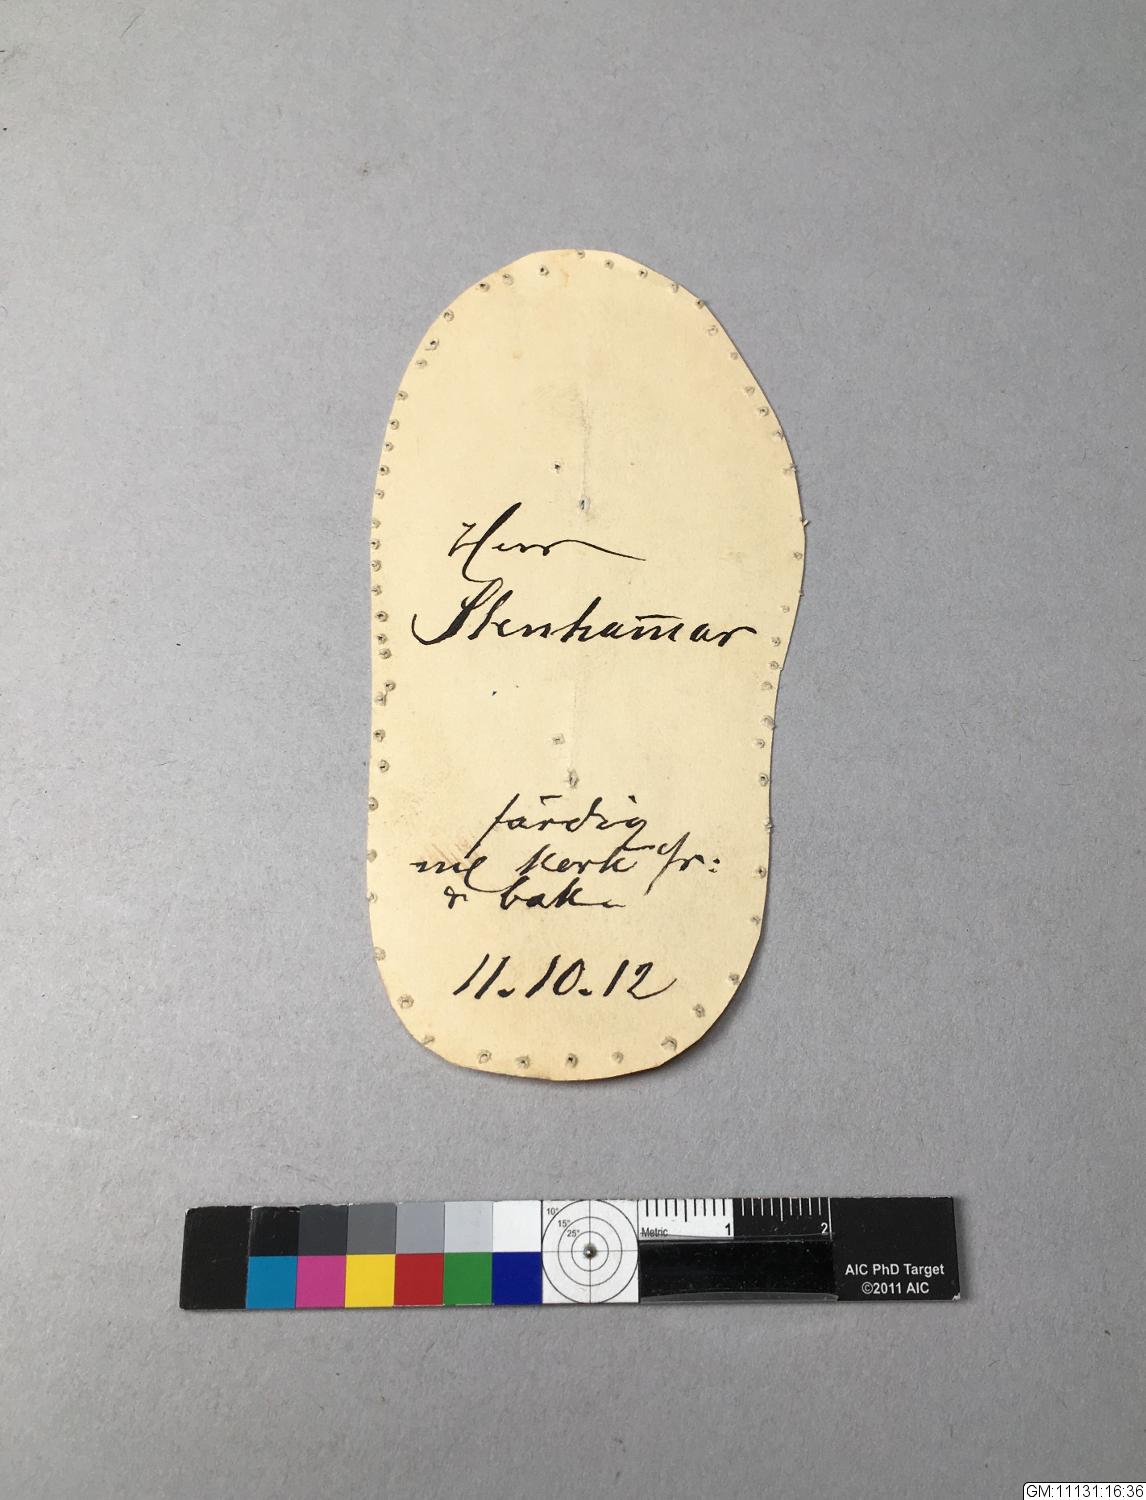 Herr
Stenham̄ar
färdig
me kork fr:
& bak.
11.10.12
10°
15°
25°
Metric
1
2
AIC PhD Target
©2011 AIC
GM:11131:16:36